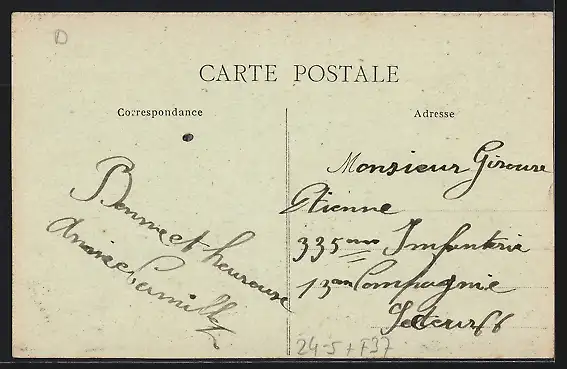 D
CARTE POSTALE
Correspondance
Adresse
Bonne et heureuse
Année Camille
Monsieur Giroure
Etienne
335eme Infenterie
13em Compagnie
Secteur 66
24-5 + F37